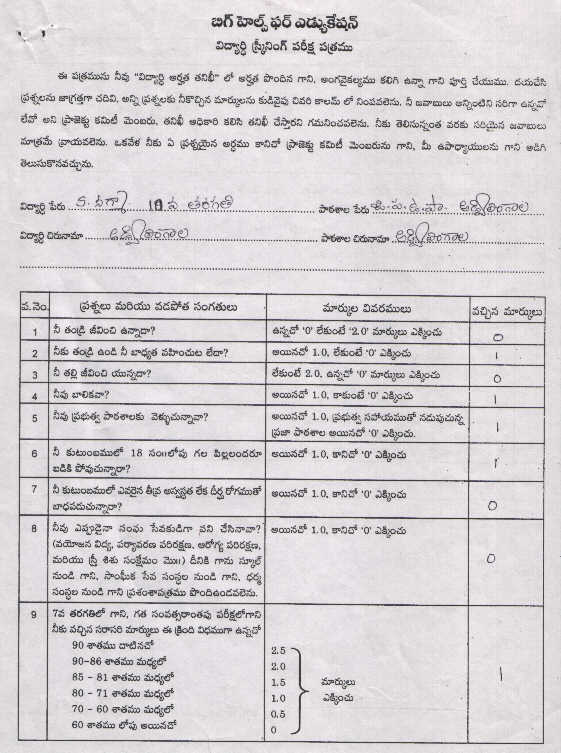 బిగ్ హెల్ప్ ఫర్ ఎడ్యుకేషన్
విద్యార్థి స్క్రీనింగ్ పరీక్ష పత్రము
ఈ పత్రమును నీవు "విద్యార్థి అర్హత తనిఖీ" లో అర్హత పొందిన గాని, అంగవైకల్యము కలిగి ఉన్నా గాని పూర్తి చేయుము. దయచేసి
ప్రశ్నలను జాగ్రత్తగా చదివి, అన్ని ప్రశ్నలకు నీకొచ్చిన మార్కులను కుడివైపు చివరి కాలమ్ లో నింపవలెను. నీ జవాబులు అన్నింటిని సరిగా ఉన్నవో
లేవో అని ప్రాజెక్టు కమిటీ మెంబరు, తనిఖీ అధికారి కలిసి తనిఖీ చేస్తారని గమనించవలెను. నీకు తెలిసున్నంత వరకు సరియైన జవాబులు
మాత్రమే వ్రాయవలెను. ఒకవేళ నీకు ఏ ప్రశ్నయైన అర్థము కానిచో ప్రాజెక్టు కమిటీ మెంబరును గాని, మీ ఉపాధ్యాయులను గాని అడిగి
తెలుసుకొనవచ్చును.
విద్యార్థి పేరు 10 వ తరగతి పాఠశాల పేరు జి.ప.ఉ.పా.
విద్యార్థి చిరునామా పాఠశాల చిరునామా
వ.నెం. ప్రశ్నలు మరియు వడపోత సంగతులు మార్కుల వివరములు వచ్చిన మార్కులు
1 నీ తండ్రి జీవించి ఉన్నాడా? ఉన్నచో '0' లేకుంటే '2.0' మార్కులు ఎక్కించు 0
2 నీకు తండ్రి ఉండి నీ బాధ్యత వహించుట లేదా? అయినచో 1.0, లేకుంటే '0' ఎక్కించు 1
3 నీ తల్లి జీవించి యున్నదా? లేకుంటే 2.0, ఉన్నచో '0' మార్కులు ఎక్కించు 0
4 నీవు బాలికవా? అయినచో 1.0, కాకుంటే '0' ఎక్కించు 1
5 నీవు ప్రభుత్వ పాఠశాలకు వెళ్ళుచున్నావా? అయినచో 1.0, ప్రభుత్వ సహాయముతో నడుపుచున్న
ప్రజా పాఠశాల అయినచో '0' ఎక్కించు. 1
6 నీ కుటుంబములో 18 సం॥లోపు గల పిల్లలందరూ అయినచో 1.0, కానిచో '0' ఎక్కించు 1
బడికి పోవుచున్నారా?
7 నీ కుటుంబములో ఎవరైన తీవ్ర అస్వస్థత లేక దీర్ఘ రోగముతో అయినచో 1.0, కానిచో '0' ఎక్కించు 0
బాధపడుచున్నారా?
8 నీవు ఎప్పుడైనా సంఘ సేవకుడిగా పని చేసినావా? అయినచో 1.0, కానిచో '0' ఎక్కించు 0
(వయోజన విద్య, పర్యావరణ పరిరక్షణ, ఆరోగ్య పరిరక్షణ,
మరియు స్త్రీ శిశు సంక్షేమం మొ॥) దీనికి గాను స్కూల్
నుండి గాని, సాంఘిక సేవ సంస్థల నుండి గాని, ధర్మ
సంస్థల నుండి గాని ప్రశంశాపత్రము పొందిఉండవలెను.
9 7వ తరగతిలో గాని, గత సంవత్సరాంతపు పరీక్షలోగాని
నీకు వచ్చిన సరాసరి మార్కులు ఈ క్రింది విధముగా ఉన్నచో
90 శాతము దాటినచో 2.5
90-86 శాతము మధ్యలో 2.0
85 - 81 శాతము మధ్యలో 1.5 మార్కులు 1
80 - 71 శాతము మధ్యలో 1.0 ఎక్కించు
70 - 60 శాతము మధ్యలో 0.5
60 శాతము లోపు అయినచో 0